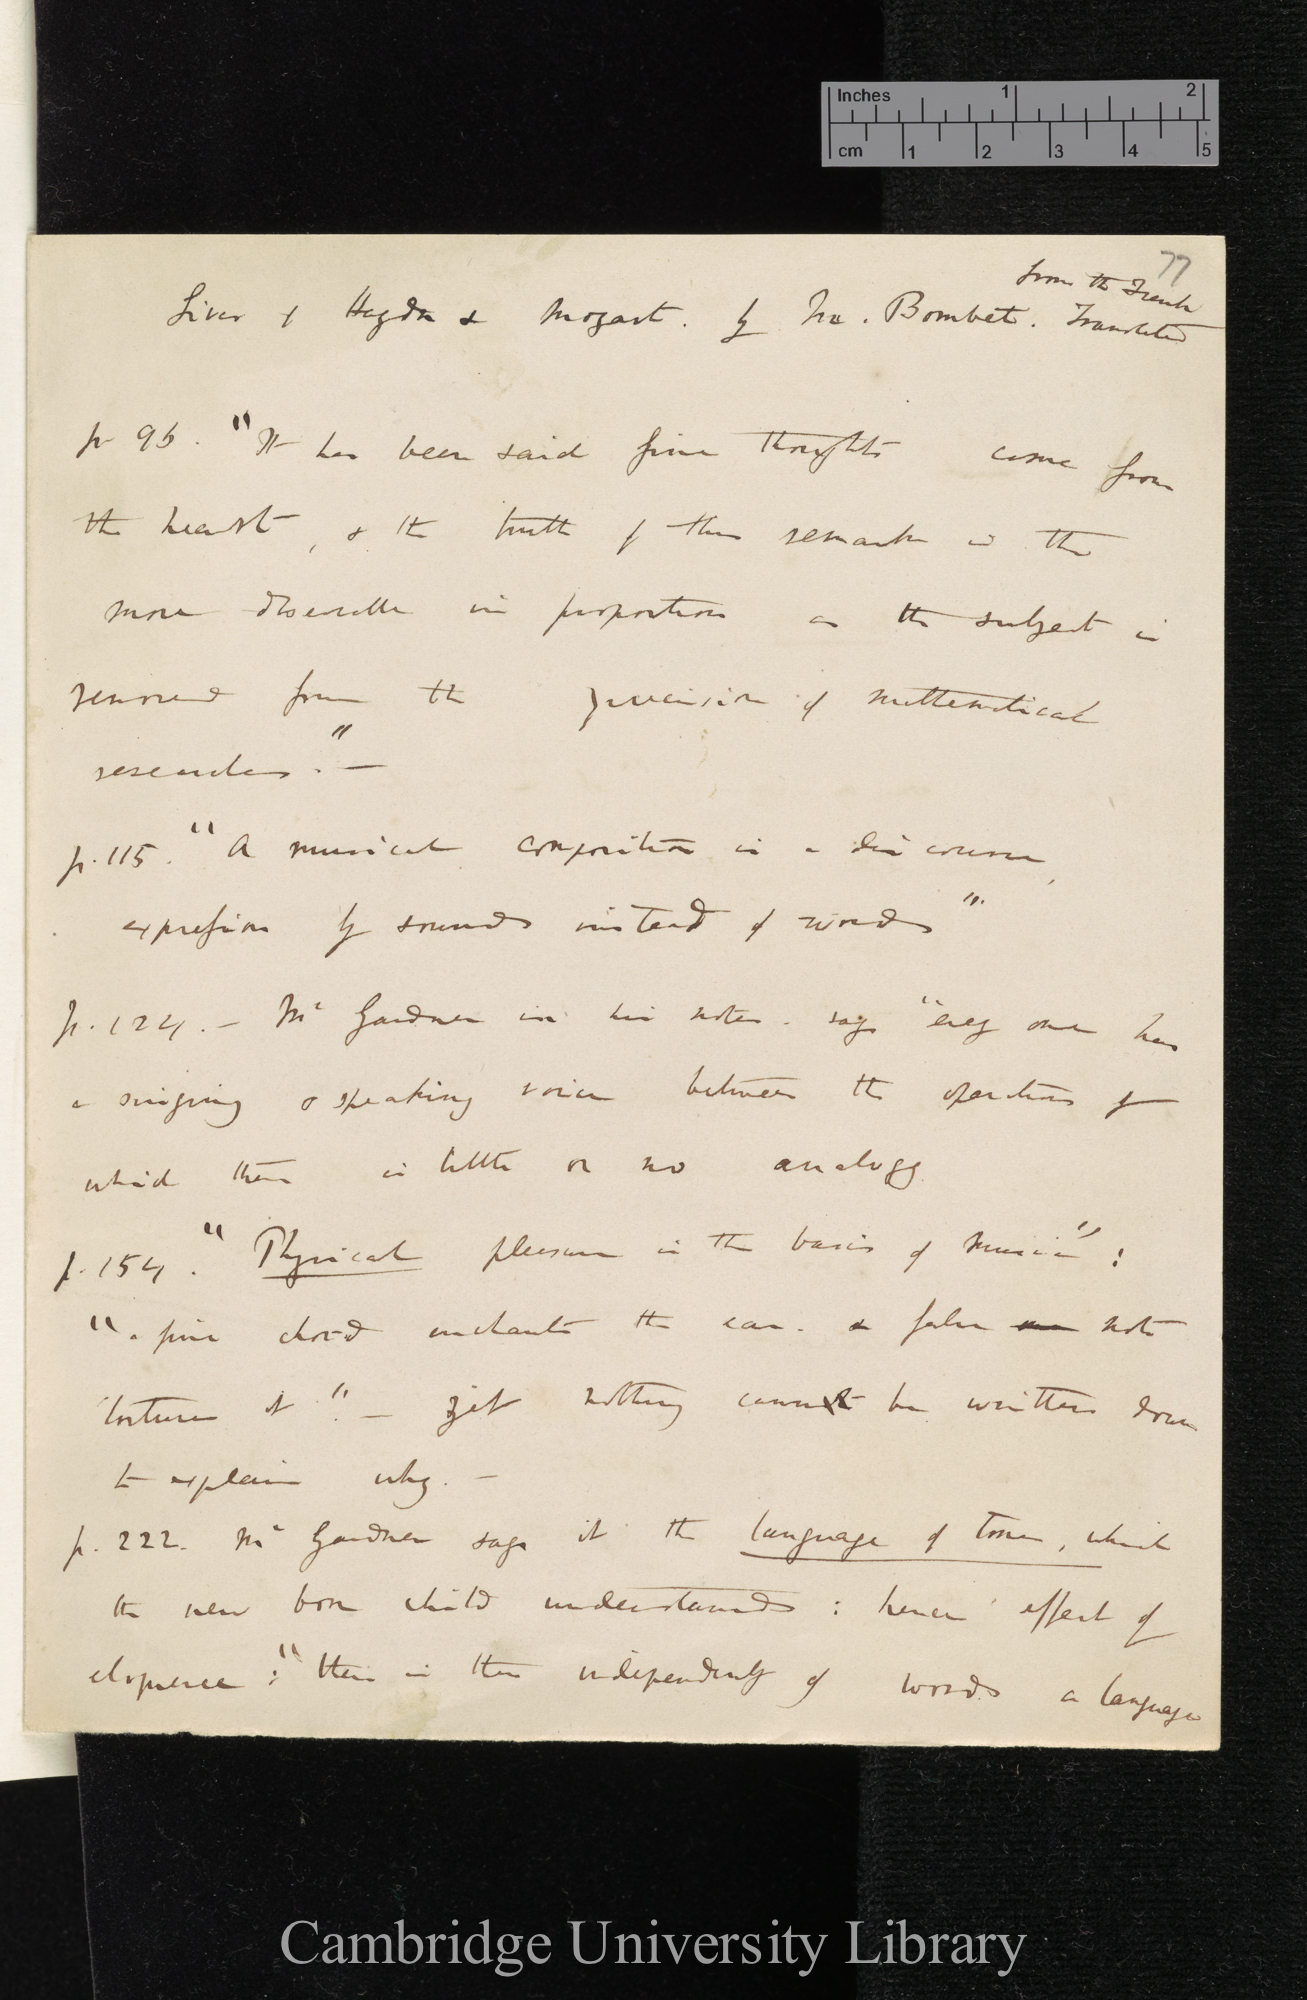 Inches 1 2
cm 1 2 3 4 5
77
from the French
Lives of Haydn & Mozart. by Bombet. Translated
p 96. "It has been said fine thoughts come from
the heart, & the truth of this remark is the
more discernible in proportion as the subject is
removed from the precision of mathematical
researches." —
p. 115. "A musical composition is a discourse,
expression by sounds instead of words"
p. 124. — Mr Gardner in his notes. says "every one has
a singing & speaking voice between the operations of
which there is little or no analogy
p. 154. "Physical pleasure is the basis of music":
"a fine chord enchants the ear. & false note
tortures it". — yet nothing cannot be written down
to explain why. —
p. 222. Mr Gardner says it the language of tones, which
the new born child understands: hence effect of
eloquence: "there is then independently of words a language
Cambridge University Library